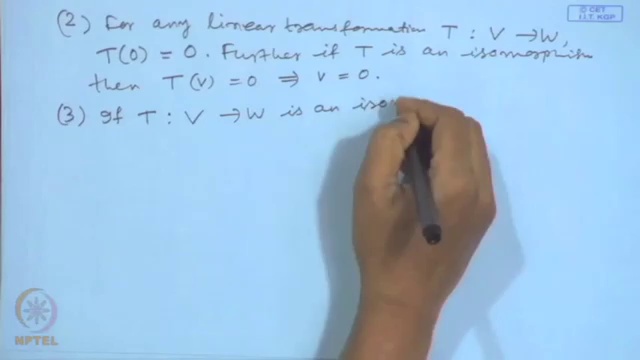 © CET
I.I.T. KGP
(2) For any linear transformation T : V → W,
T(0) = 0. Further if T is an isomorphism
then T(v) = 0 ⟹ v = 0.
(3) If T : V → W is an iso
NPTEL